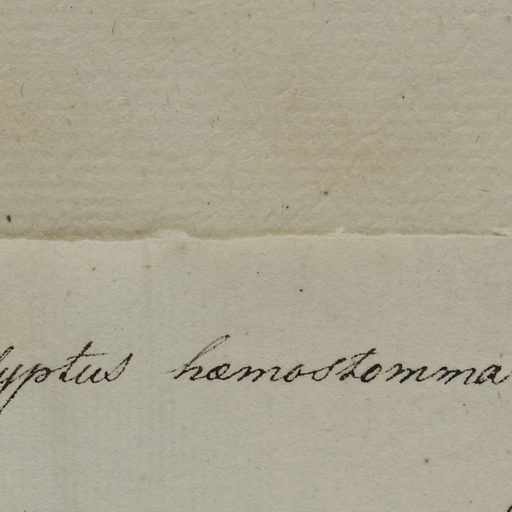 lyptus hæmostomma